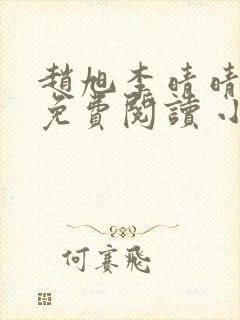 趙旭李晴晴
免費閱讀小
何賽飛